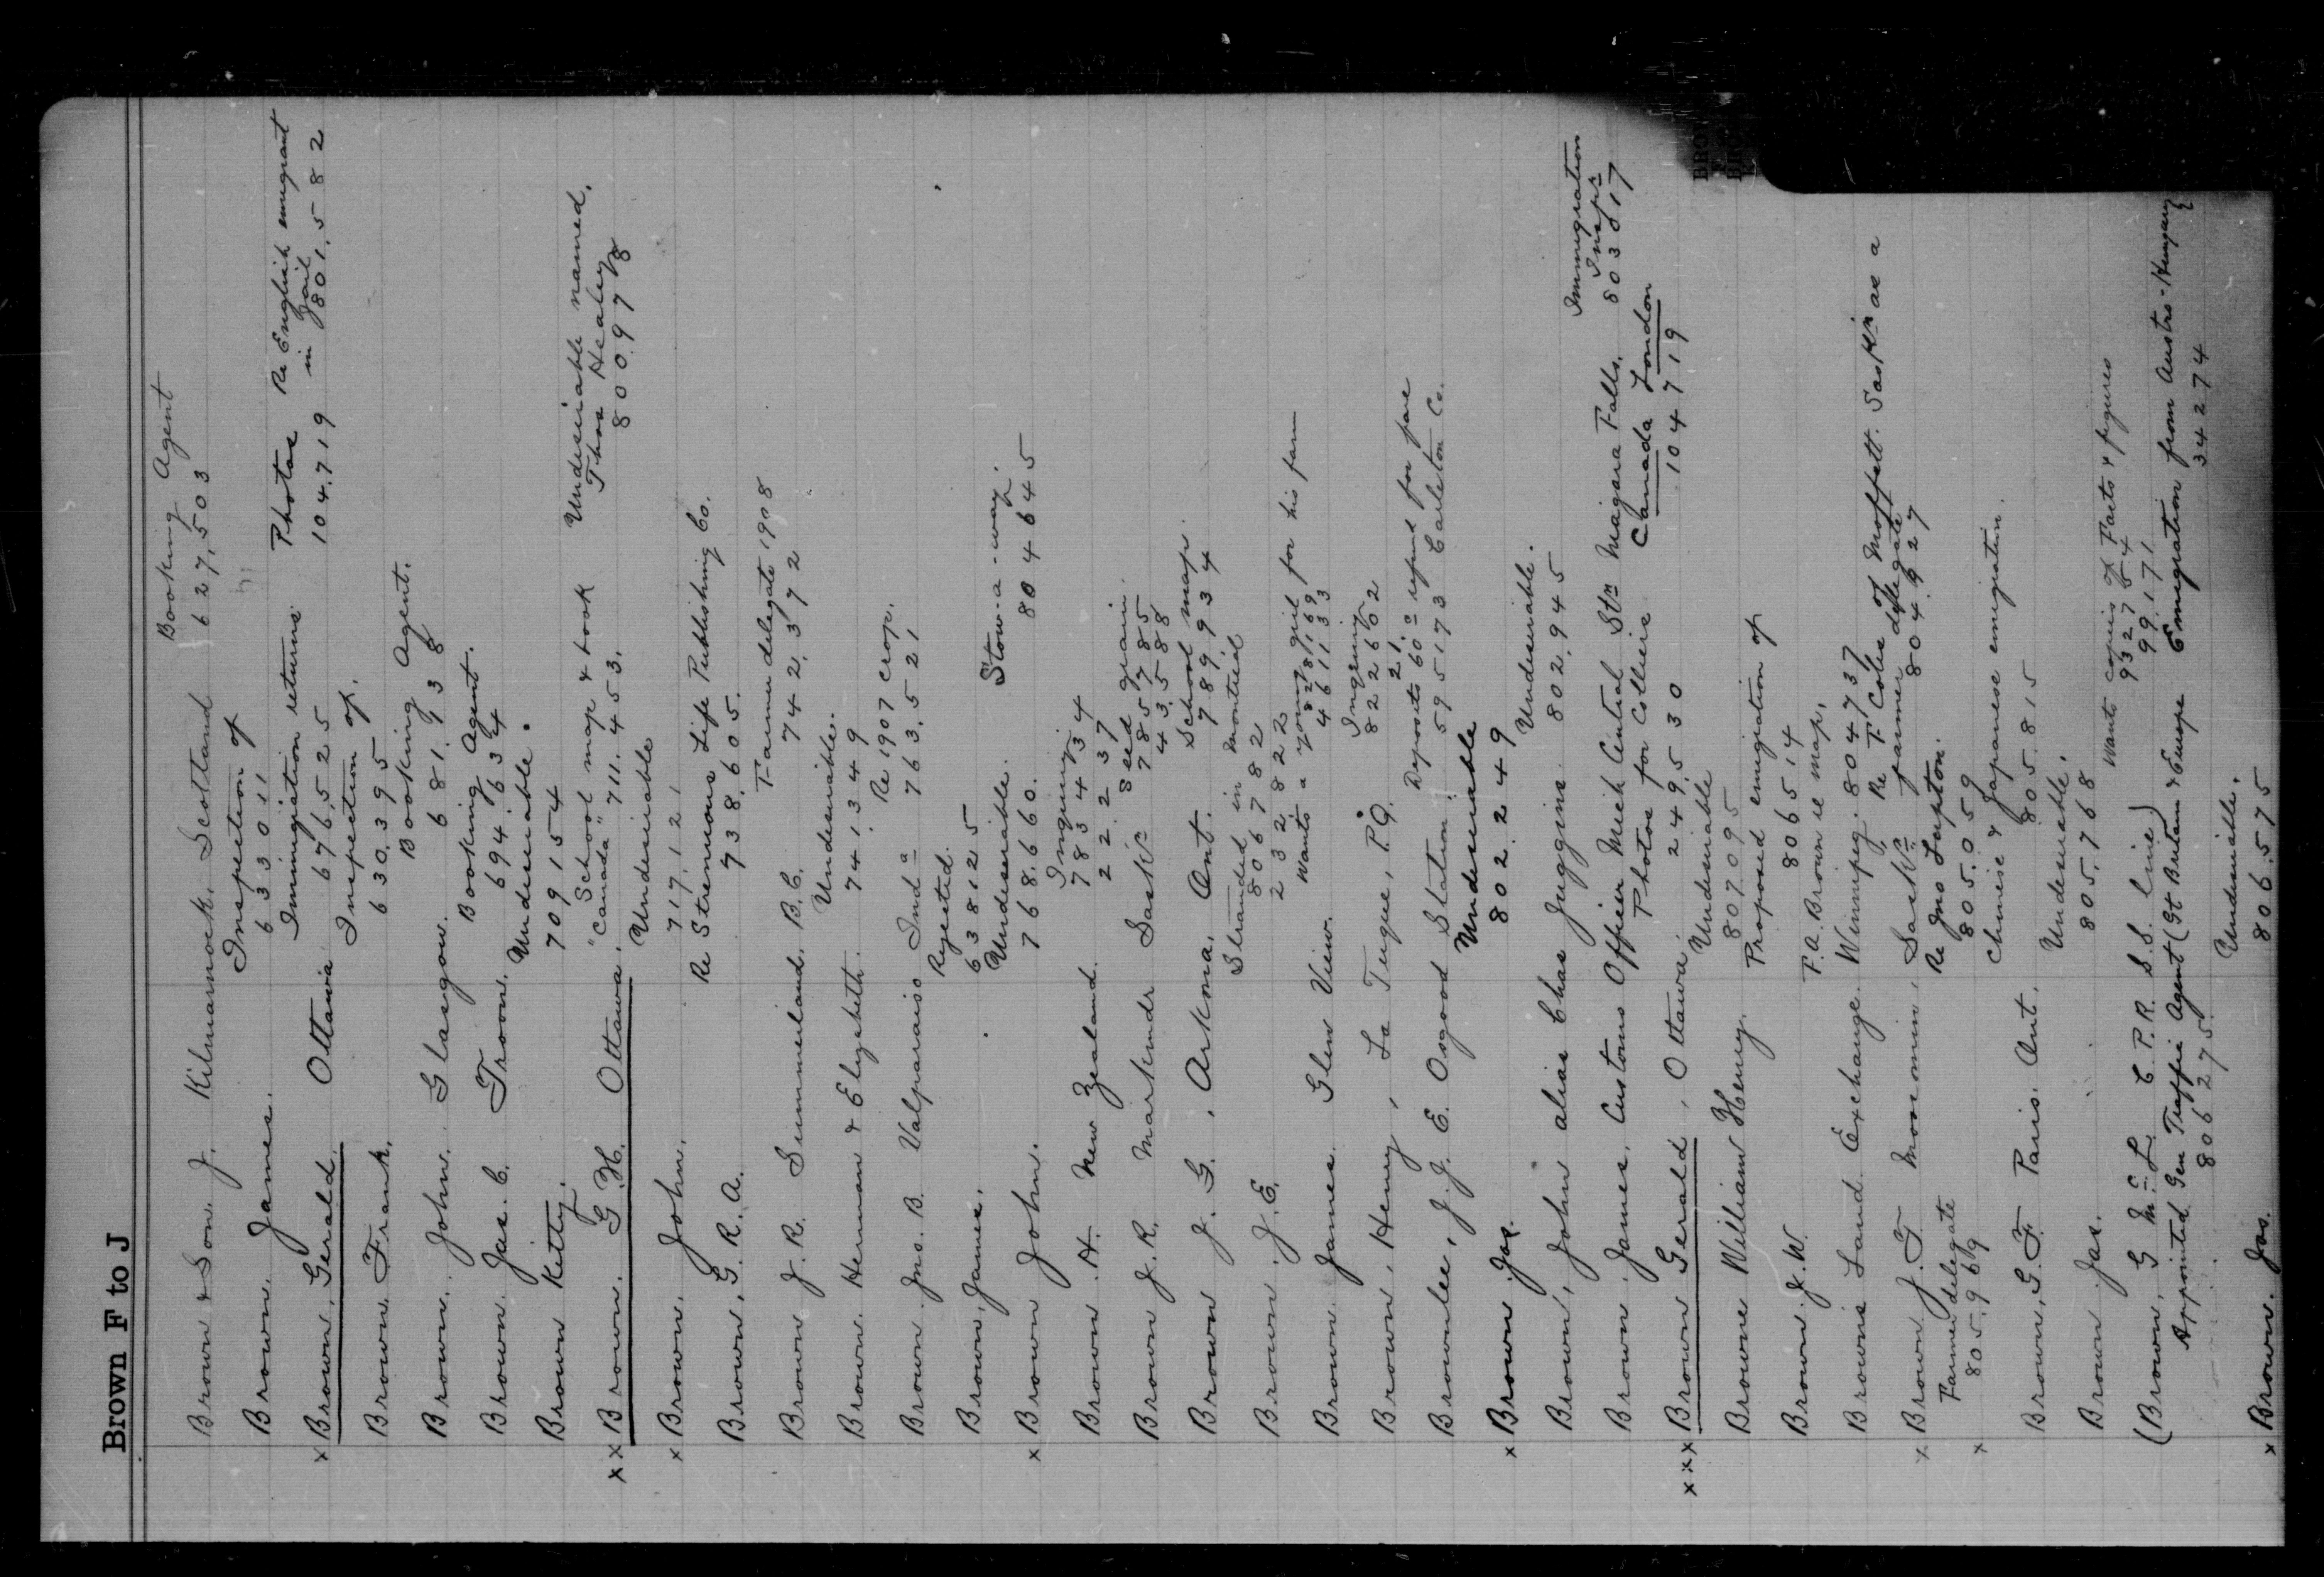 Brown F to J
Brown & Son. J. Kilmarnock, Scotland Booking Agent 627,503
Brown. James. Inspection of 633011
x Brown, Gerald. Ottawa Immigration returns 676,525 Photos 104,719 Re English emigrant in Jail 801,582
Brown, Frank. Inspection of. 630,395
Brown. John. Glasgow. Booking Agent. 681,938
Brown. Jas. C. Troon. Booking Agent. 694,634
Brown Kitty. Undesirable. 709154
x x Brown. G. H. Ottawa. School map & book "Canada" 711,453. Undesirable named. Thos Healey 800978
x Brown. John. Undesirable 717,121
Brown, G. R. A. Re Strenuous Life Publishing Co. 738,605.
Brown J. R. Summerland, B.C. Farmer delegate 1908 742,372
Brown. Herman & Elizabeth. Undesirable. 741349
Brown. Jno. B. Valparaiso Inda Re 1907 crop. 763,521
Brown, James. Rejected. 638125
x Brown John. Undesirable. 768,660. Stow-a-way. 804645
Brown. H. New Zealand. Inquiry. 783434 222237
Brown J. R. Markindr Saskn Seed grain. 785785 43,5588
Brown J. G., Arkona, Ont. School map. 789,934
Brown. J. E. Stranded in Montreal 806782 2328822
Brown. James. Glen View. Wants a young girl for his farm 461133
Brown, Henry, La Tuque, P.Q. Inquiry 822602 21.
Brownlee, J. J. E. Osgood Station. Deposits 60c refund for fare 595173 Carleton Co.
x Brown. Jos. Undesirable 802,249
Brown, John alias Chas Juggins Undesirable. 802,945
Brown. James, Customs Officer Mich Central Stn Niagara Falls. Immigration Inspr 803017
x x x Brown Gerald, Ottawa. Photos for Collieis 249,530 Canada London 104719
Browne William Henry. Undesirable 807095
Brown. J. W. Proposed emigration of 806514
Browns Land Exchange. Winnipeg. F. A. Brown re map, 804737
x Brown J. T. Moosomin, Saskn Re T Coles of Moffatt. Saskn as a farmer delegate 804,927
Farmer delegate 805,969
x Re Jno Lupton. 805,059
Brown, G. F. Paris. Ont. Chinese & Japanese emigration. 805,815
Brown Jas. Undesirable. 805,768
(Brown, G McL. C.P.R. S.S. line) Wants copies of Facts & figures 932764 99,171
Appointed Gen Traffic Agent (Gt Britain & Europe 806275. Emigration from Austro-Hungary 342274
x Brown. Jos. Undesirable. 806,575
BRO
F
BRO